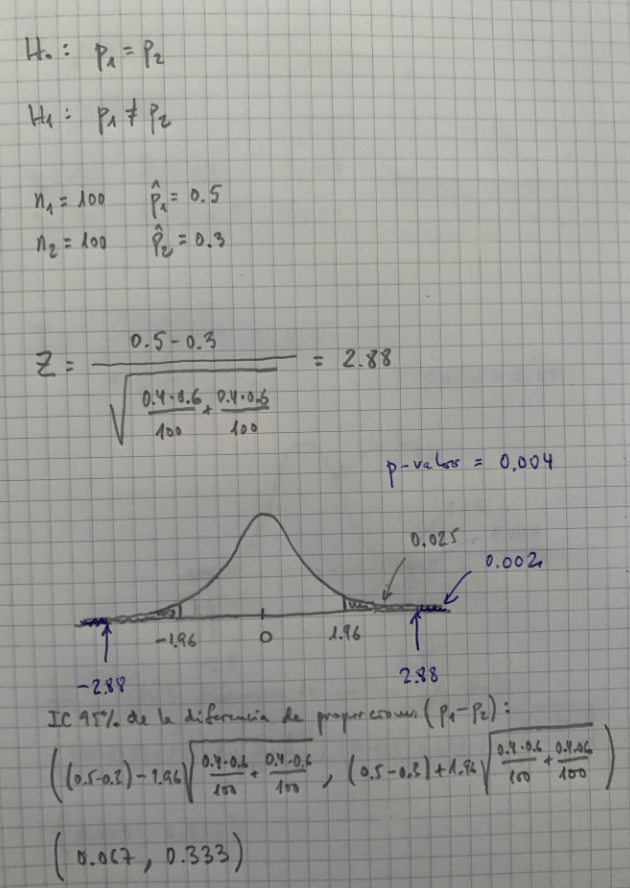 H₀: p₁ = p₂
H₁: p₁ ≠ p₂
n₁ = 100 p̂₁ = 0.5
n₂ = 100 p̂₂ = 0.3
Z = (0.5 - 0.3) / √(0.4·0.6/100 + 0.4·0.6/100) = 2.88
p-valor = 0.004
0.025
0.002
-1.96 0 1.96
-2.88 2.88
IC 95% de la diferencia de proporciones (p₁-p₂):
((0.5-0.3) - 1.96 √(0.4·0.6/100 + 0.4·0.6/100), (0.5-0.3) + 1.96 √(0.4·0.6/100 + 0.4·0.6/100))
(0.067, 0.333)